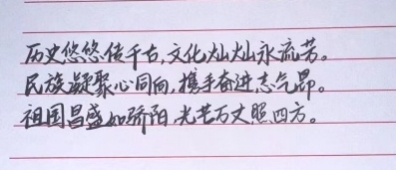 历史悠悠传千古,文化灿灿永流芳。
民族凝聚心同向,携手奋进志气昂。
祖国昌盛如骄阳,光芒万丈照四方。